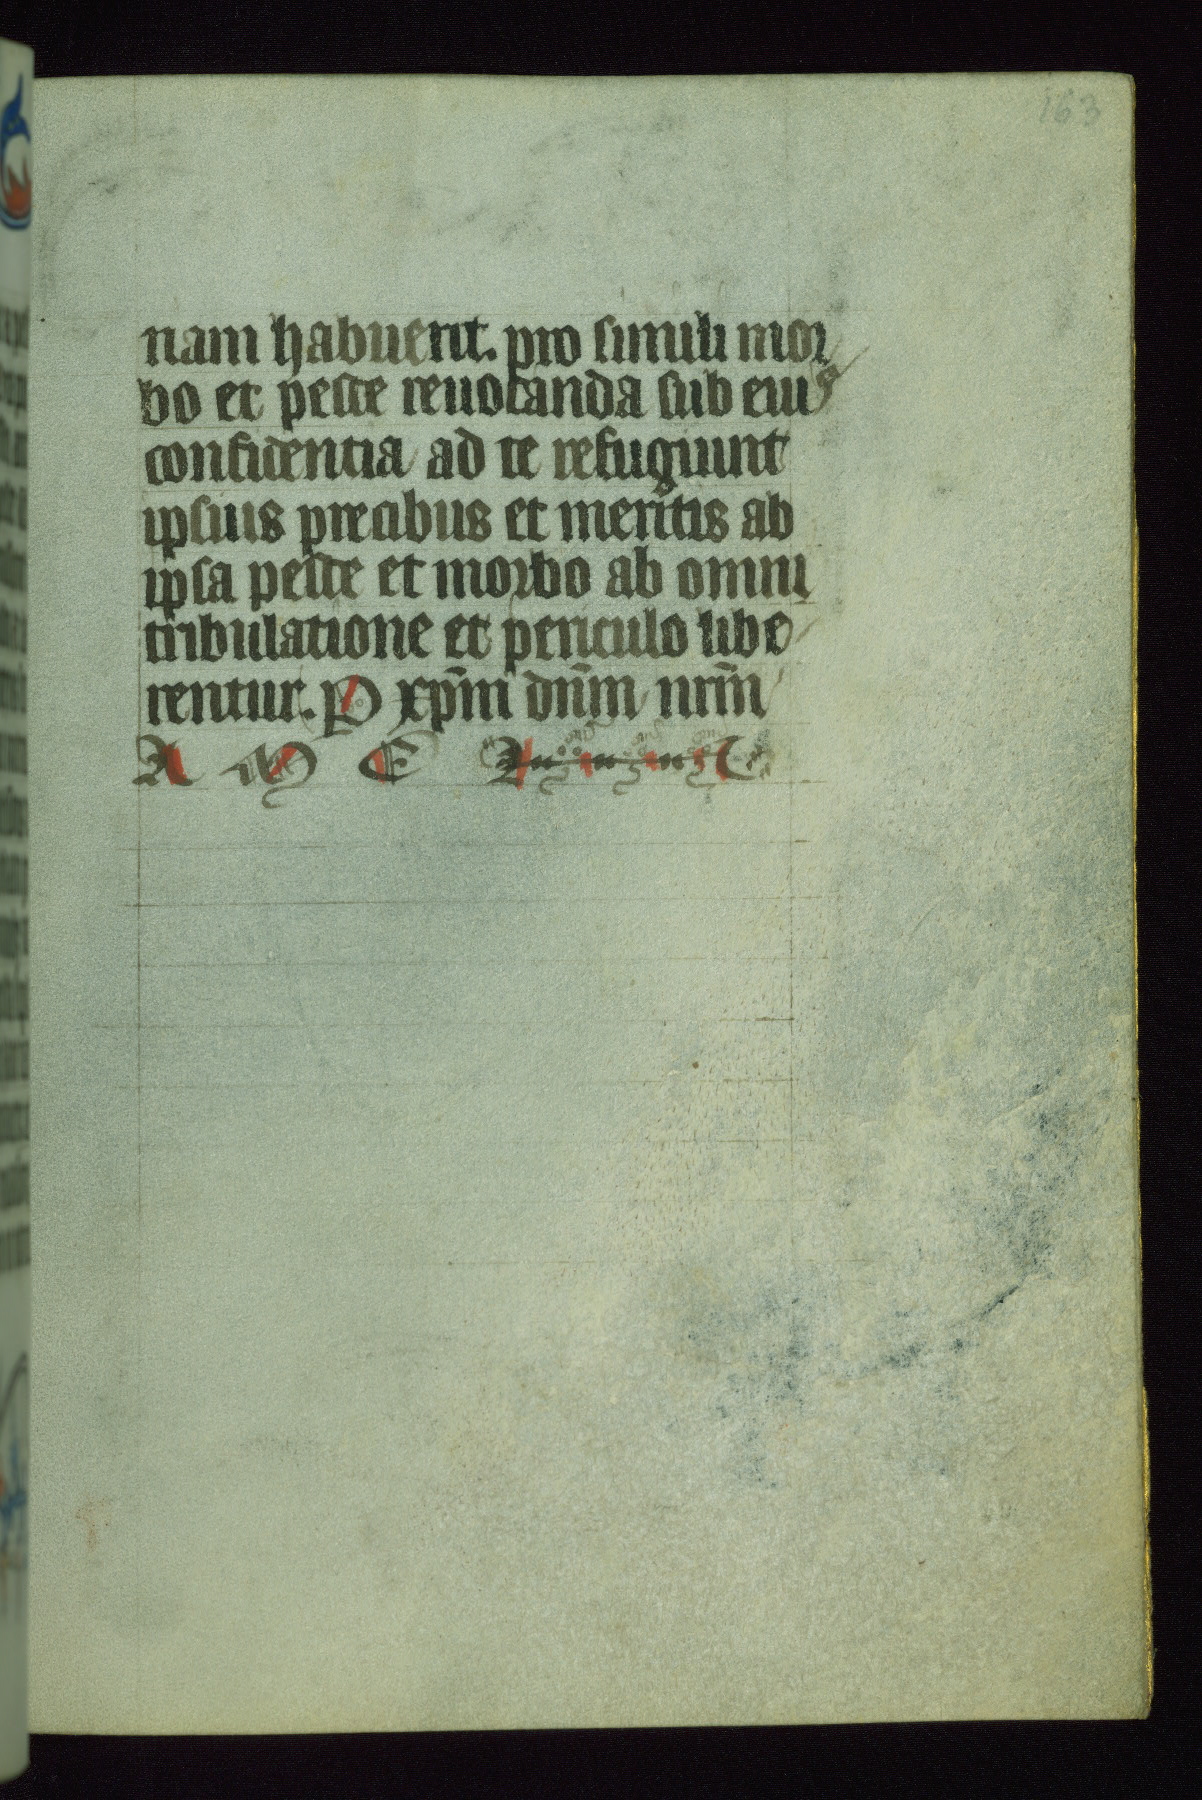 163
nam habuerit. pro simili mor
bo et peste reuocanda sub eius
confidentia ad te refugiunt
ipsius precibus et meritis ab
ipsa peste et morbo ab omni
tribulatione et periculo libe
rentur. P xp̄m dn̄m nr̄m
A M E